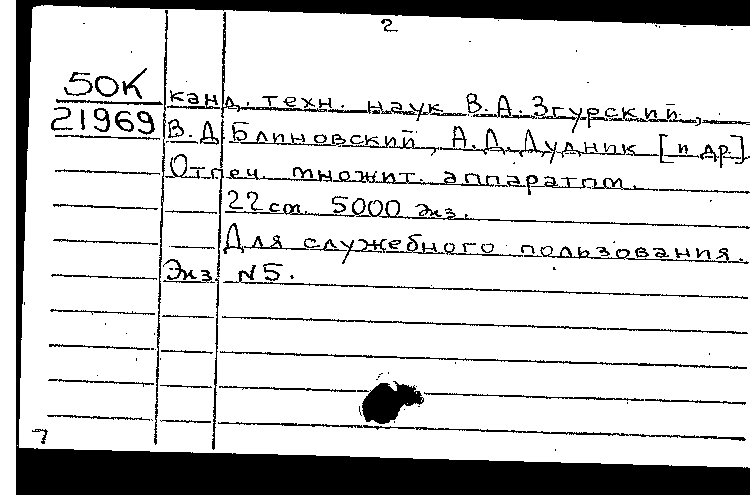 2
50К канд. техн. наук В.А. Згурский,
21969 В.Д Блиновский, А.Д. Дудник [и др]
Отпеч. множит. аппаратом.
22 см. 5000 экз.
Для служебного пользования.
Экз N5.
7